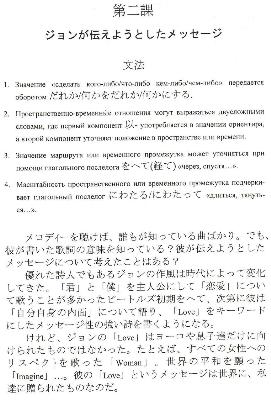 第二課
ジョンが伝えようとしたメッセージ
文法
1. Значение «сделать кого-либо/что-либо кем-либо/чем-либо» передается
оборотом だれか/何かをだれか/何かにする.
2. Пространственно-временные отношения могут выражаться двусложными
словами, где первый компонент 以- употребляется в значении ориентира,
а второй компонент уточняет положение в пространстве или времени.
3. Значение маршрута или временного промежутка может уточняться при
помощи глагольного послелога をへて(経て) «через, спустя...».
4. Масштабность пространственного или временного промежутка подчерки-
вает глагольный послелог にわたる/にわたって «длиться, тянуть-
ся...».
メロディーを聴けば、誰もが知っている曲ばかり。でも、
彼が書いた歌詞の意味を知っている?彼が伝えようとした
メッセージについて考えたことはある?
優れた詩人でもあるジョンの作風は時代によって変化
してきた。「君」と「僕」を主人公にして「恋愛」につい
て歌うことが多かったビートルズ初期をへて、次第に彼は
「自分自身の内面」について語り、「Love」をキーワード
にしたメッセージ性の強い詩を書くようになる。
けれど、ジョンの「Love」はヨーコや息子達だけに向け
られたものではなかった。たとえば、すべての女性への
リスペクトを歌った「Woman」、世界の平和を願った
「Imagine」…。彼の「Love」というメッセージは世界に、私
達に贈られたものなのだ。